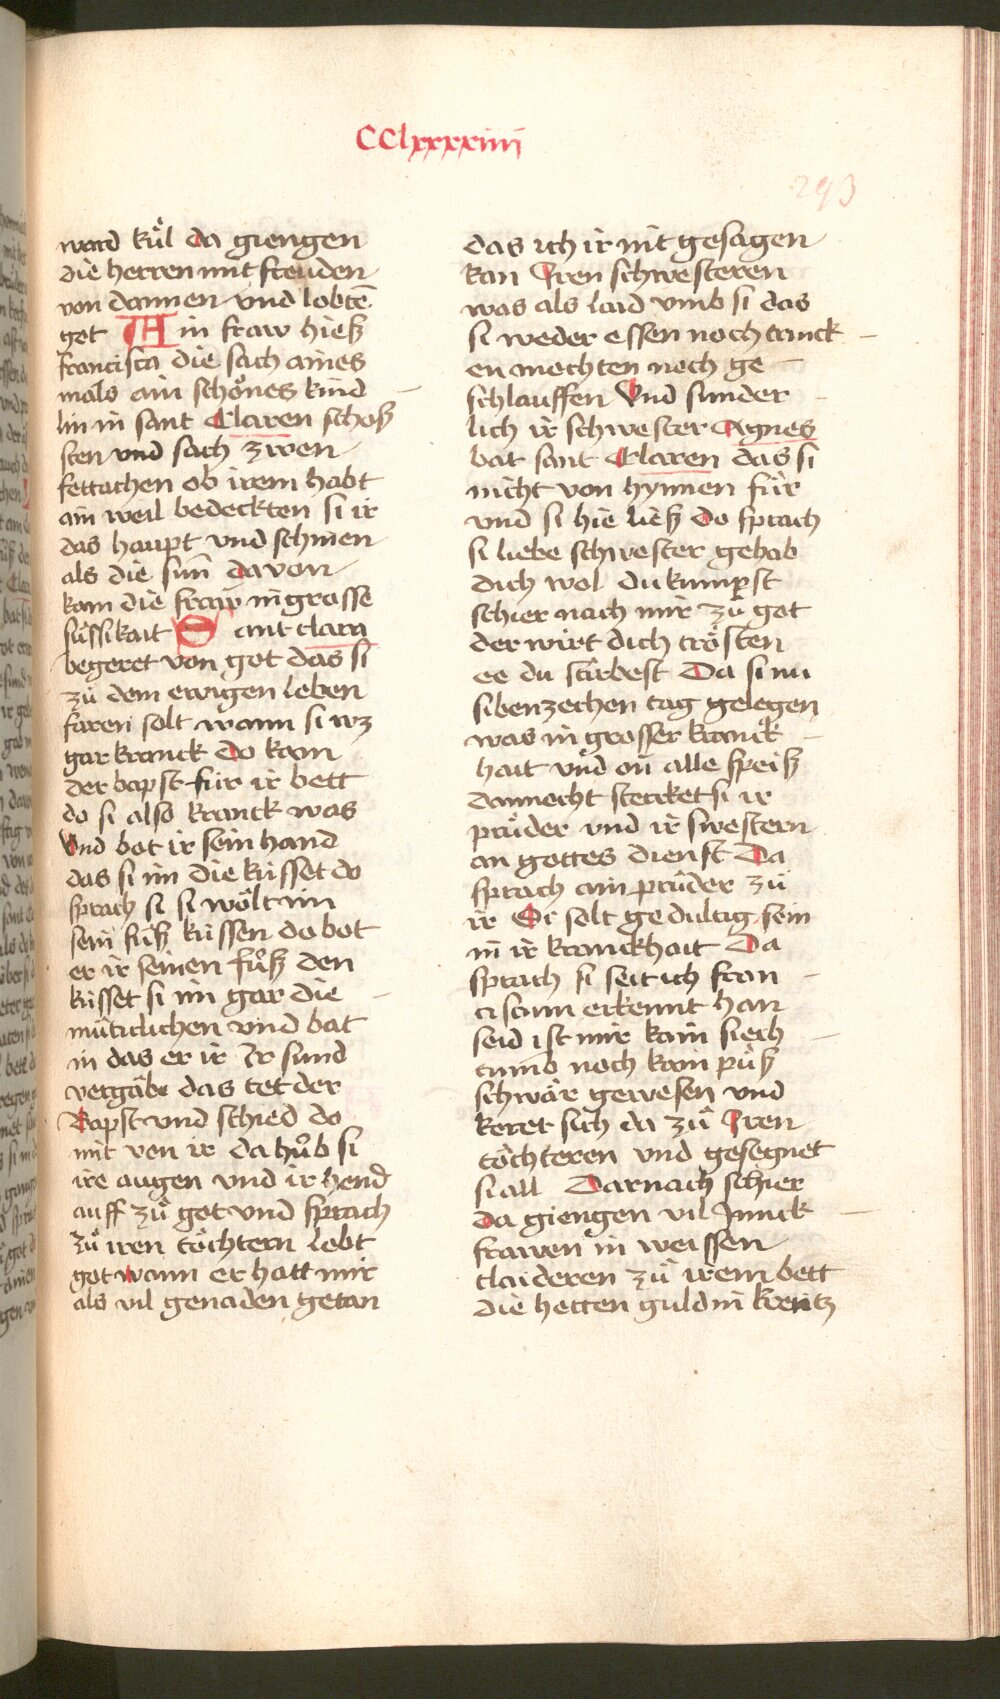 CClxxxxiiii
293
ward kůl da giengen
die herren mit freuden
von dannen vnd lobtē
got Ain fraw hieß
francisca die sach aines
mals ain schönes kind
lin in sant Claren schoß
sten vnd sach zwen
fettachen ob irem habt
ain weil bedeckten si ir
das haupt vnd schinen
als die sun̄ da von
kom die fraw in grosse
süssikait Sant clara
begeret von got das si
zů dem ewigen leben
faren solt wann si wz
gar kranck Do kam
der bapst für ir bett
do si also kranck was
Vnd bot ir sein hand
das si im die küsset do
sprach si si wölt im
sein füß küssen do bot
er ir seinen fůß den
küsset si im gar die
mütticlichen vnd bat
in das er ir Ir sund
vergäbe das tet der
Bapst vnd schied do
mit von ir da hůb si
ire augen vnd ir hend
auff zů got vnd sprach
zů iren töchtern lobt
got wann er hatt mir
als vil genaden getan
das ich ir nit gesagen
kan Iren schwesteren
was als laid vmb si das
si weder essen noch tranck
en mochten noch ge
schlauffen Vnd sunder
lich ir schwester Agnes
bat sant Claren das si
nicht von hynnen für
vnd si hie ließ do sprach
si liebe schwester gehab
dich wol du kumpst
schier nach mir zů got
der wirt dich trösten
ee du stirbest Da si nu
sibenzechen tag gelegen
was in grosser kranck
hait vnd on alle speiß
dannocht sterket si ir
prüder vnd ir swestern
an gottes dienst Da
sprach ain prüder zů
ir Er solt gedultig sein
in ir kranckhait Da
sprach si seit ich fran
ciscum erkennt han
seid ist mir kain siech
tumb noch kain půß
schwär gewesen vnd
keret sich da zů Iren
töchteren vnd gesegnet
si all Darnach schier
da giengen vil Junck
frawen in weissen
claideren zů irem bett
die hetten guldin kreutz